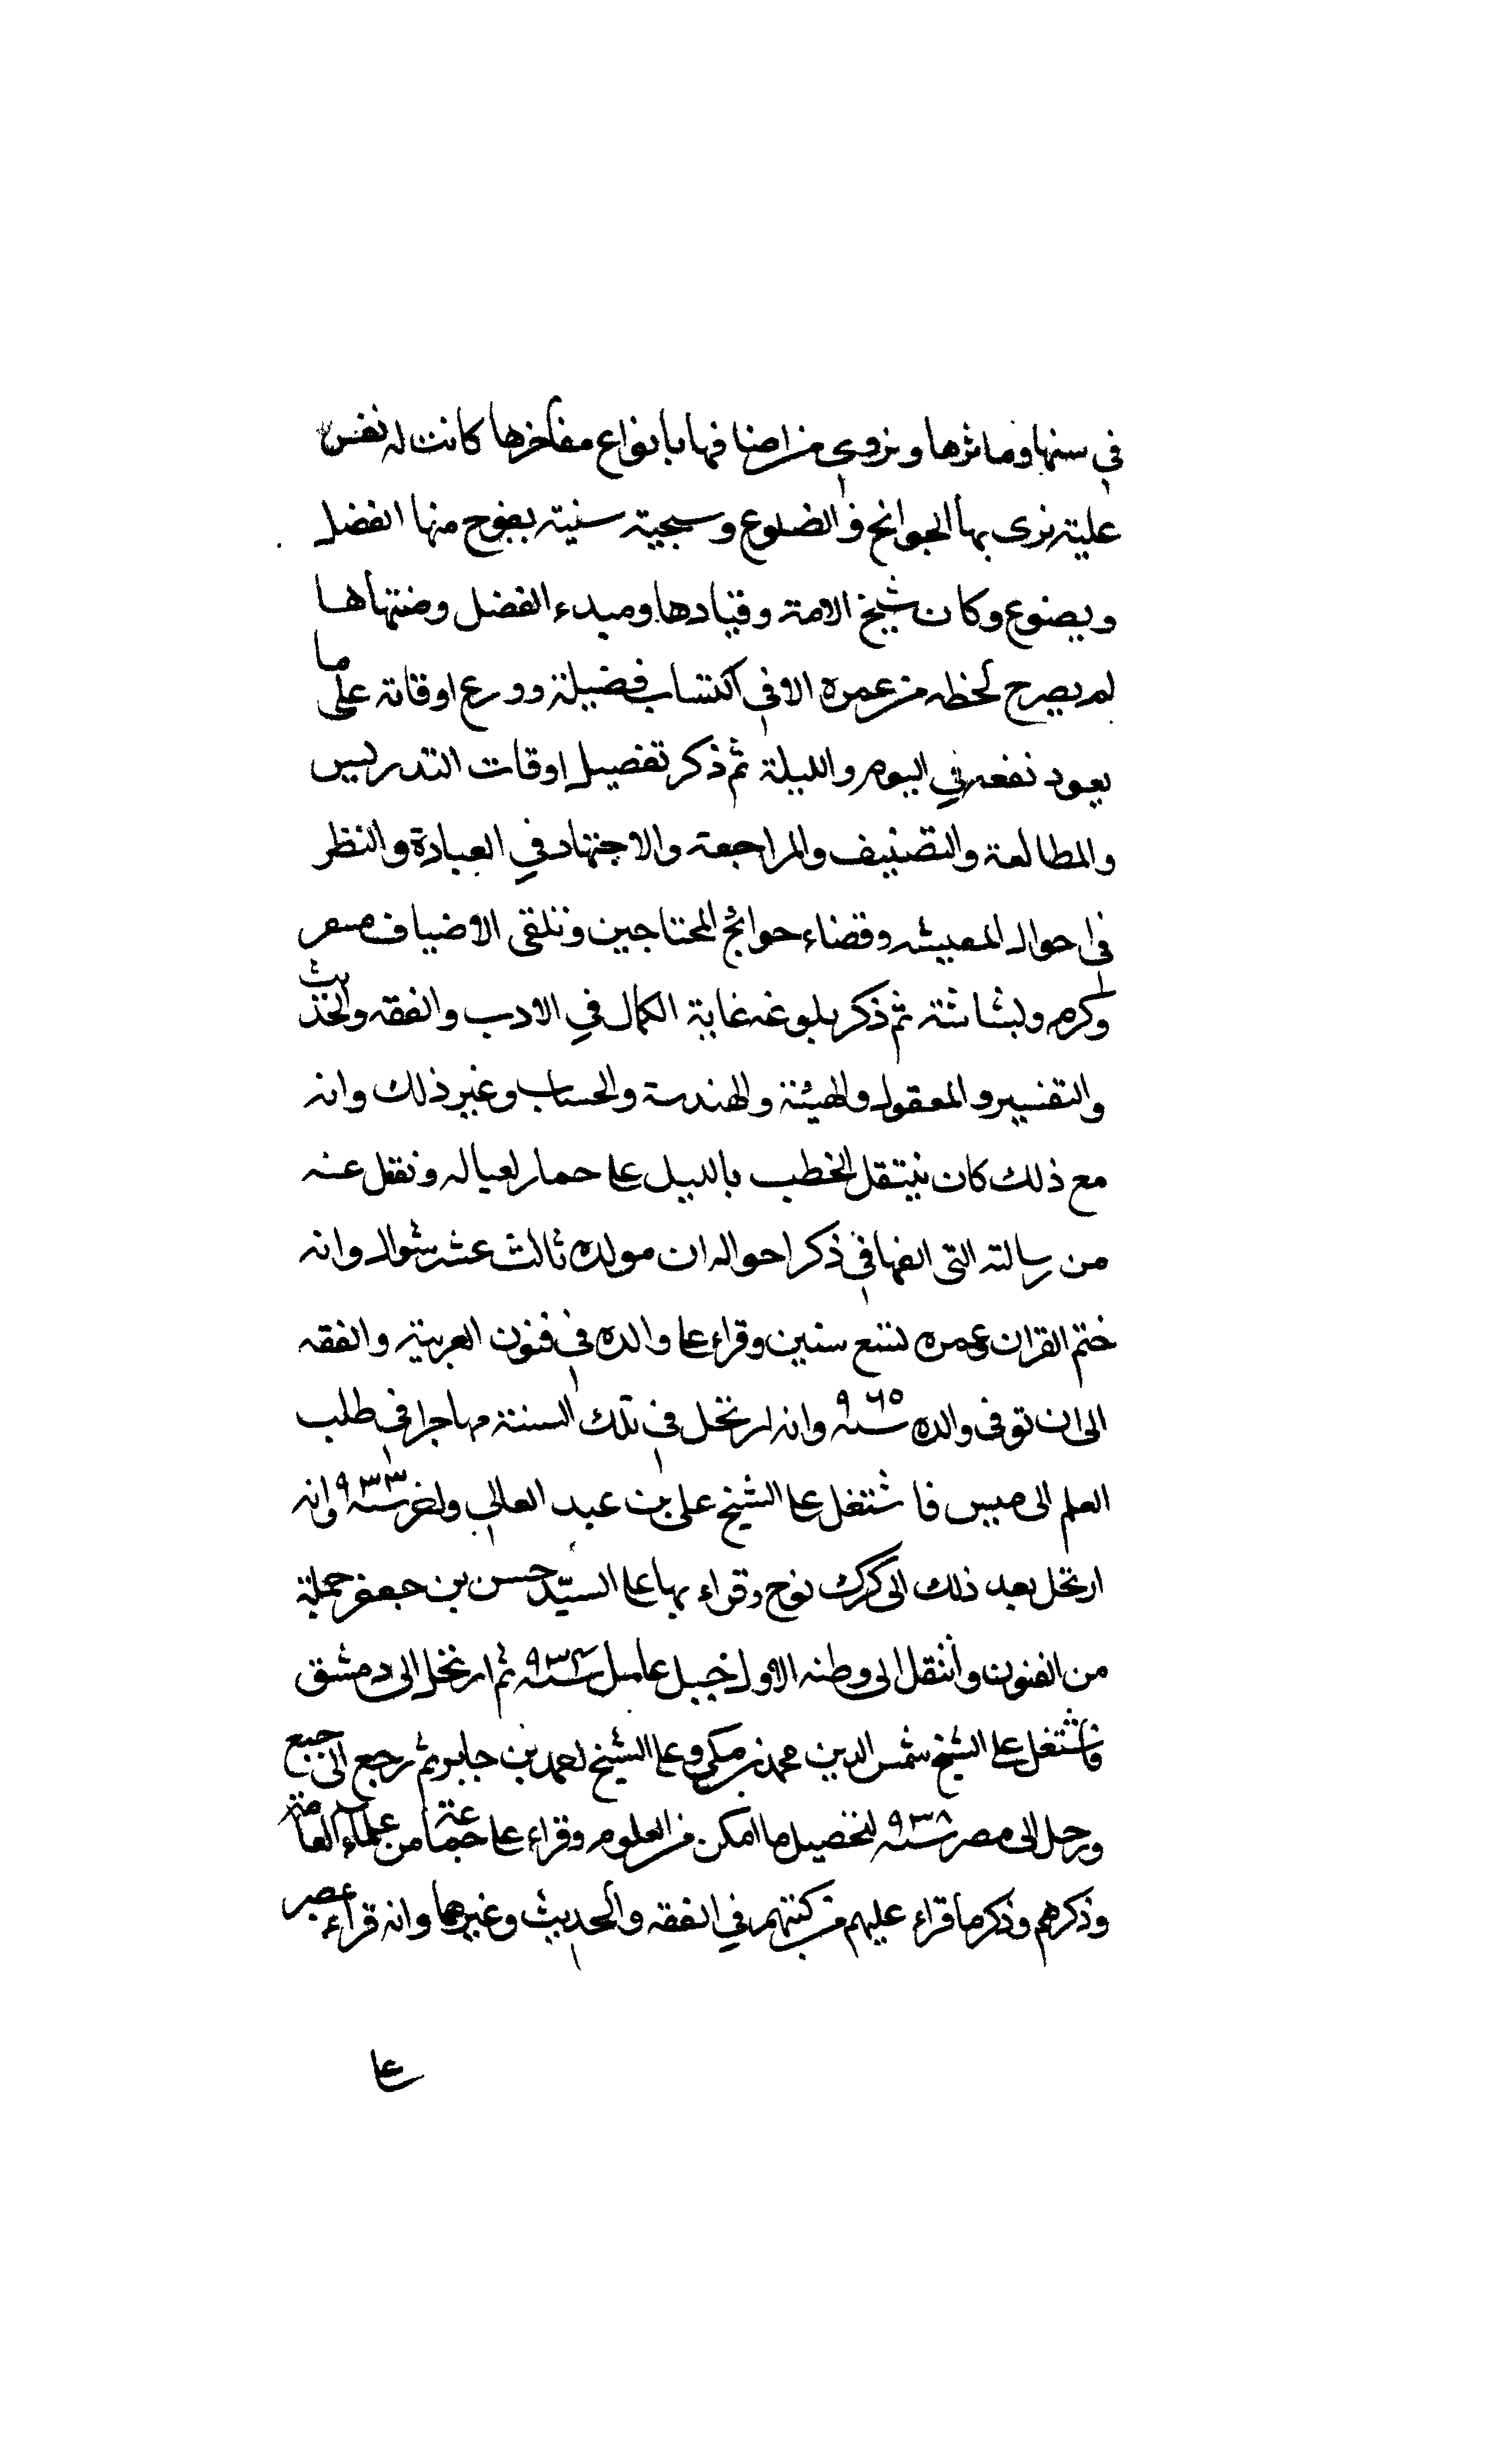 في سننها وماثرها وتروى من اصنافها بانواع مفاخرها كانت له نفس
علية تزى بها الجوانح والضلوع وسجية سنية يفوح منها الفضل
ويضوع وكان شيخ الامة وقيادها ومبدء الفضل ومنتهاها
لم يصرح لحظه من عمره الا في اكتساب فضيلة ووزع اوقاته على ما
يعود نفعه في اليوم والليلة ثم ذكر تفصيل اوقات التدريس
والمطالعة والتصنيف والمراجعة والاجتهاد في العبادة والنظر
في احوال المعيشه وقضاء حوائج المحتاجين وتلقى الاضياف
وكرم وبشاشة ثم ذكر بلوغه غاية الكمال في الادب والفقه والحديث
والتفسير والمعقول والهيئة والهندسة والحساب وغير ذلك وانه
مع ذلك كان ينتقل الحطب بالليل على حمار لعياله ونقل عنه
من رسالته التى الفها في ذكر احواله ان مولده ثالث عشر شوال وانه
ختم القران وعمره تسع سنين وقراء على والده في فنون العربية والفقه
الى ان توفى والده سنه ٩٦٥ وانه ارتحل في تلك السنة مهاجرا في طلب
العلم الى ميس فاشتغل على الشيخ على بن عبد العالي سنه ٩٣٣ وانه
ارتحل بعد ذلك الى كرك نوح وقراء بها على السيّد حسن بن جعفر جملة
من الفنون وانتقل الى وطنه الاول جبل عامل سنه ٩٣٤ ثم ارتحل الى دمشق
فاشتغل على الشيخ شمس الدين محمد بن مكي وعلى الشيخ احمد بن جابر ثم رجع الى جبع
ورحل الى مصر سنه ٩٣٨ لتحصيل ما امكن من العلوم وقراء على جماعة من علماء العامة
وذكرهم وذكر ما قراء عليهم من كتبهم في الفقه والحديث وغيرها وانه قراء
على